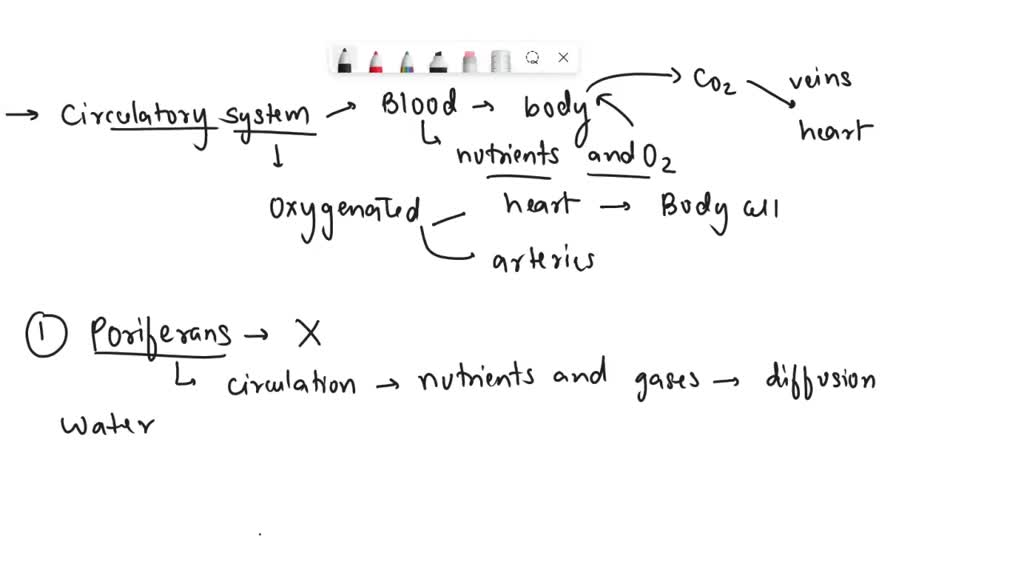 → Circulatory system → Blood → body → CO2 → veins
heart
↳ nutrients and O2
↓
Oxygenated — heart → Body all
arteries
① Poriferans → X
↳ circulation → nutrients and gases → diffusion
water